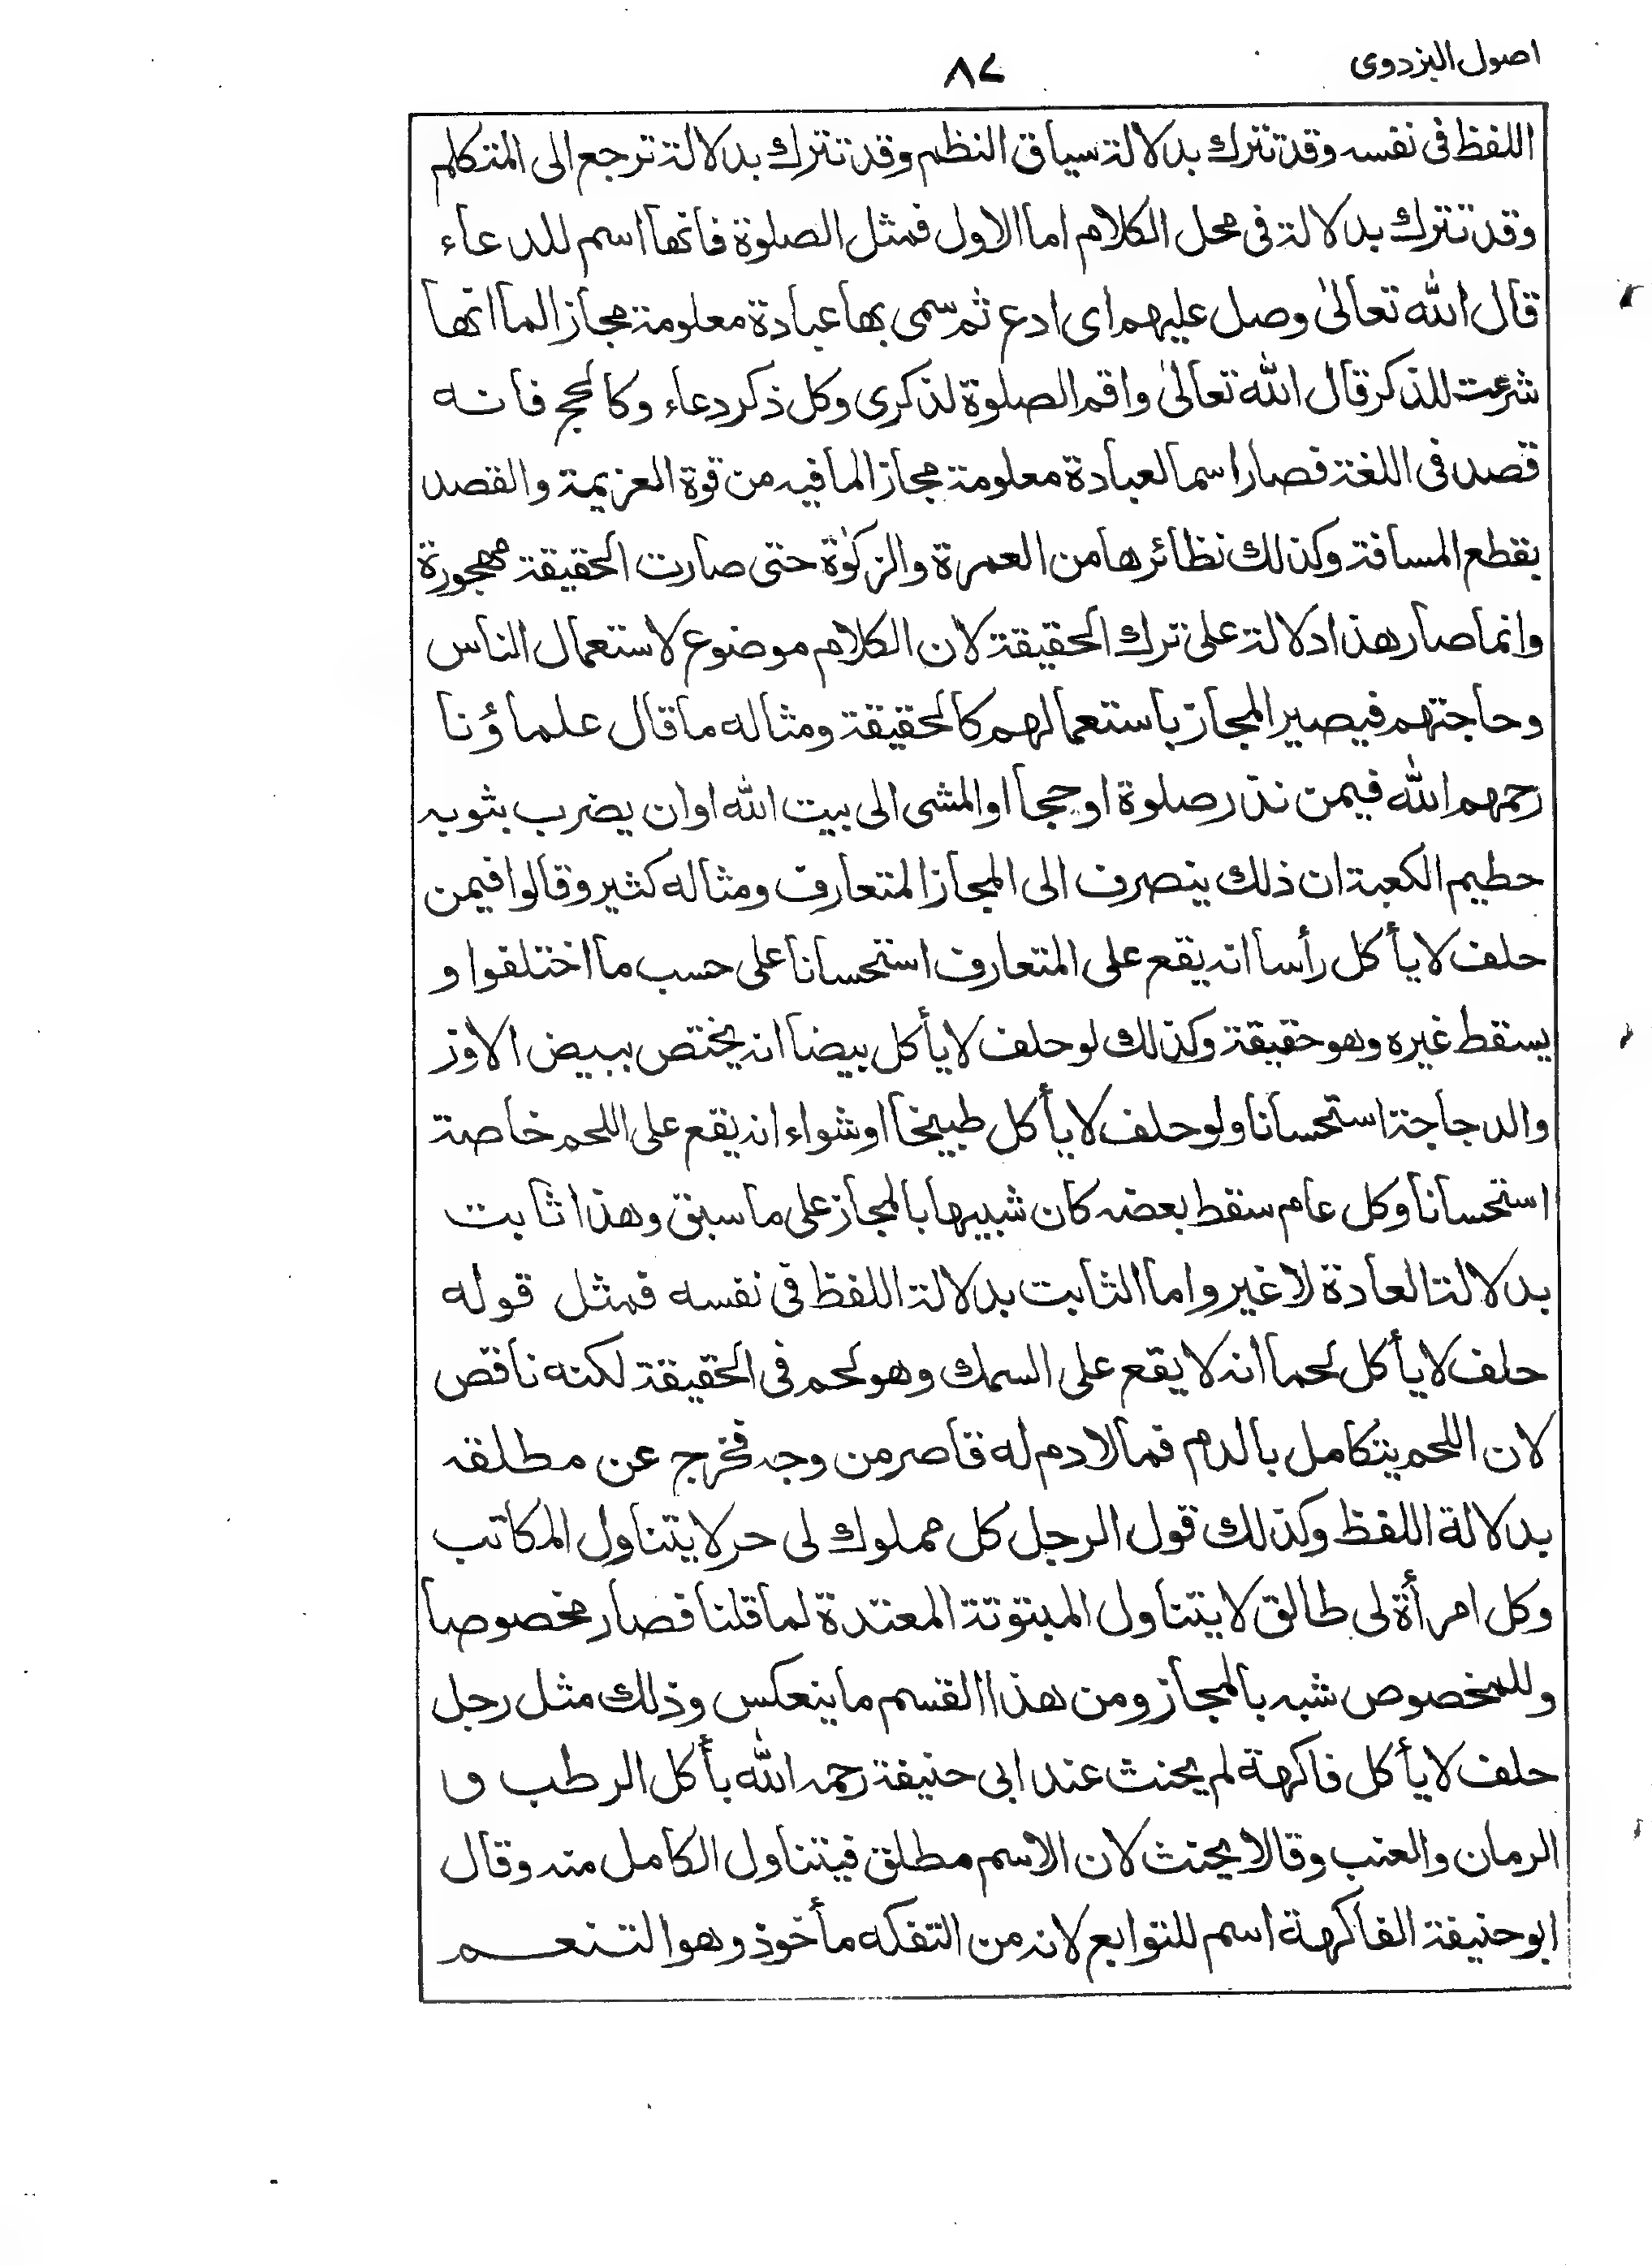 اصول البزدوى
٨٧
اللفظ فى نفسه وقد تترك بدلالة سياق النظم وقد تترك بدلالة ترجع الى المتكلم
وقد تترك بدلالة فى محل الكلام اما الاول فمثل الصلوة فانها اسم للدعاء
قال الله تعالىٰ وصل عليهم اى ادع ثم سمى بها عبادة معلومة مجازا لما انها
شرعت للذكر قال الله تعالىٰ واقم الصلوة لذكرى وكل ذكر دعاء وكالحج فانه
قصد فى اللغة فصار اسما لعبادة معلومة مجازا لما فيه من قوة العزيمة والقصد
بقطع المسافة وكذلك نظائرها من العمرة والزكوٰة حتى صارت الحقيقة مهجورة
وانما صار هذا دلالة على ترك الحقيقة لان الكلام موضوع لاستعمال الناس
وحاجتهم فيصير المجاز باستعمالهم كالحقيقة ومثاله ما قال علماؤنا
رحمهم الله فيمن نذر صلوة او حجا او المشى الى بيت الله او ان يضرب بثوبه
حطيم الكعبة ان ذلك ينصرف الى المجاز المتعارف ومثاله كثير وقالوا فيمن
حلف لا يأكل رأسا انه يقع على المتعارف استحسانا على حسب ما اختلفوا و
يسقط غيره وهو حقيقة وكذلك لو حلف لا يأكل بيضا انه يختص ببيض الاوز
والدجاجة استحسانا ولو حلف لا يأكل طبيخا او شواء انه يقع على اللحم خاصة
استحسانا وكل عام سقط بعضه كان شبيها بالمجاز على ما سبق وهذا ثابت
بدلالة العادة لا غير واما الثابت بدلالة اللفظ فى نفسه فمثل قوله
حلف لا يأكل لحما انه لا يقع على السمك وهو لحم فى الحقيقة لكنه ناقص
لان اللحم يتكامل بالدم فما لا دم له قاصر من وجه فخرج عن مطلقه
بدلالة اللفظ وكذلك قول الرجل كل مملوك لى حر لا يتناول المكاتب
وكل امرأة لى طالق لا يتناول المبتوتة المعتدة لما قلنا فصار مخصوصا
وللمخصوص شبه بالمجاز ومن هذا القسم ما ينعكس وذلك مثل رجل
حلف لا يأكل فاكهة لم يحنث عند ابى حنيفة رحمه الله بأكل الرطب و
الرمان والعنب وقالا يحنث لان الاسم مطلق فيتناول الكامل منه وقال
ابو حنيفة الفاكهة اسم للتوابع لانه من التفكه مأخوذ وهو التنعم